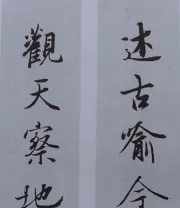 述古喻今
觀天察地